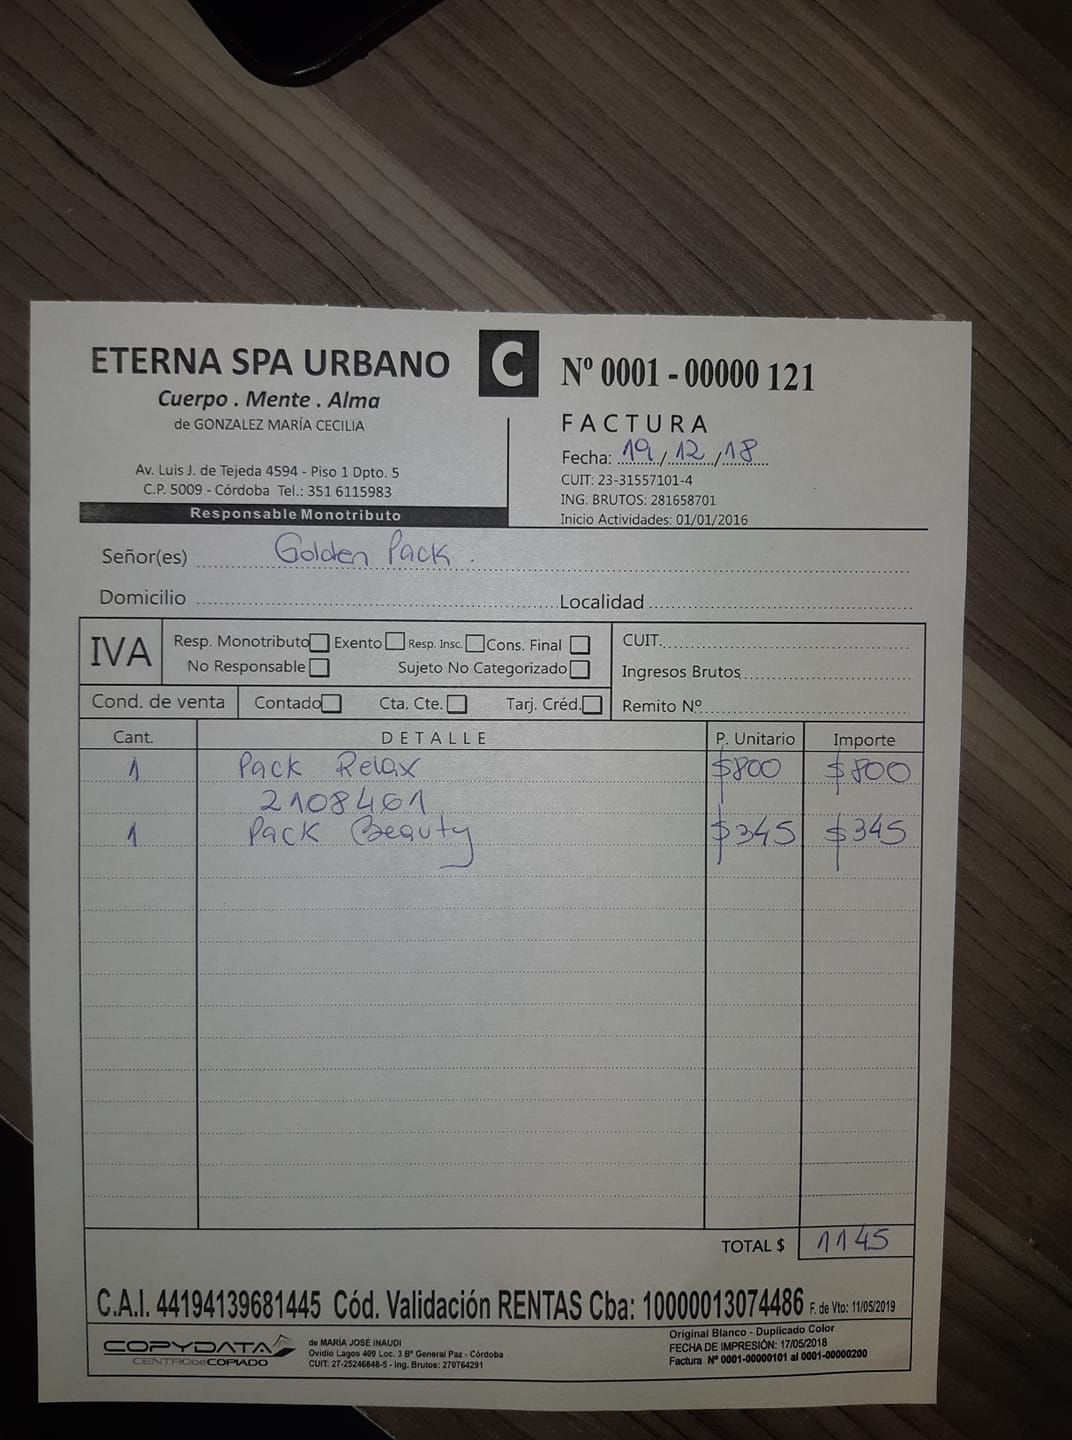 ETERNA SPA URBANO
Cuerpo . Mente . Alma
de GONZALEZ MARÍA CECILIA
Av. Luis J. de Tejeda 4594 - Piso 1 Dpto. 5
C.P. 5009 - Córdoba Tel.: 351 6115983
Responsable Monotributo
C
Nº 0001 - 00000 121
FACTURA
Fecha: 19/12/18
CUIT: 23-31557101-4
ING. BRUTOS: 281658701
Inicio Actividades: 01/01/2016
Señor(es) Golden Pack.
Domicilio Localidad
IVA Resp. Monotributo Exento Resp. Insc. Cons. Final
No Responsable Sujeto No Categorizado
CUIT.
Ingresos Brutos
Cond. de venta Contado Cta. Cte. Tarj. Créd. Remito Nº
Cant. DETALLE P. Unitario Importe
1 Pack Relax $800 $800
2108461
1 Pack Beauty $345 $345
TOTAL $ 1145
C.A.I. 44194139681445 Cód. Validación RENTAS Cba: 10000013074486 F. de Vto: 11/05/2019
COPYDATA
CENTRO DE COPIADO
de MARÍA JOSE INAUDI
Ovidio Lagos 409 Loc. 3 Bº General Paz - Córdoba
CUIT: 27-25246848-5 - Ing. Brutos: 270764291
Original Blanco - Duplicado Color
FECHA DE IMPRESIÓN: 17/05/2018
Factura Nº 0001-00000101 al 0001-00000200